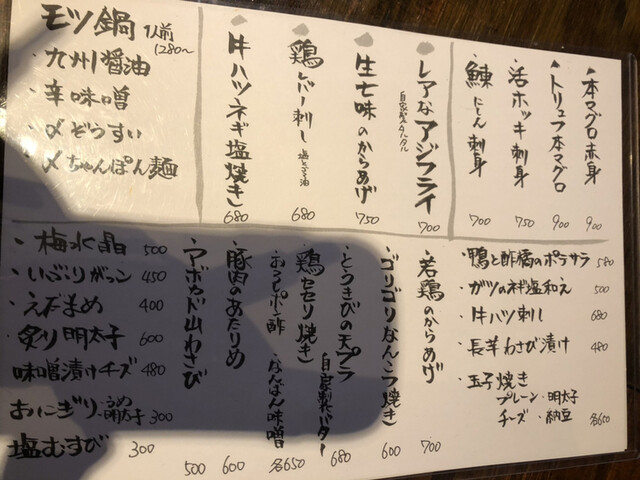 モツ鍋 1人前 1280〜
・九州醤油
・辛味噌
・〆ぞうすい
・〆ちゃんぽん麺
本マグロ赤身 900
トリュフ本マグロ 900
活ホッキ刺身 750
鰊にしん刺身 700
レアなアジフライ 自家製タルタル 700
生七味のからあげ 750
鶏レバー刺し 塩とごま油 680
牛ハツネギ塩焼き 680
・鴨と酢橘のポラサラ 580
・ガツのネギ塩和え 500
・牛ハツ刺し 680
・長芋わさび漬け 480
・玉子焼き
プレーン・明太子
チーズ・納豆 各650
・若鶏のからあげ 700
・ゴリゴリなんこつ焼き 600
・とうきびの天プラ 自家製バター 680
・鶏セセリ焼き おろしポン酢 なんばん味噌 各650
・豚肉のあたりめ 600
・アボカド山わさび 500
・梅水晶 500
・いぶりがっこ 450
・えだまめ 400
・炙り明太子 600
味噌漬けチーズ 480
おにぎり・うめ 明太子 300
塩むすび 300